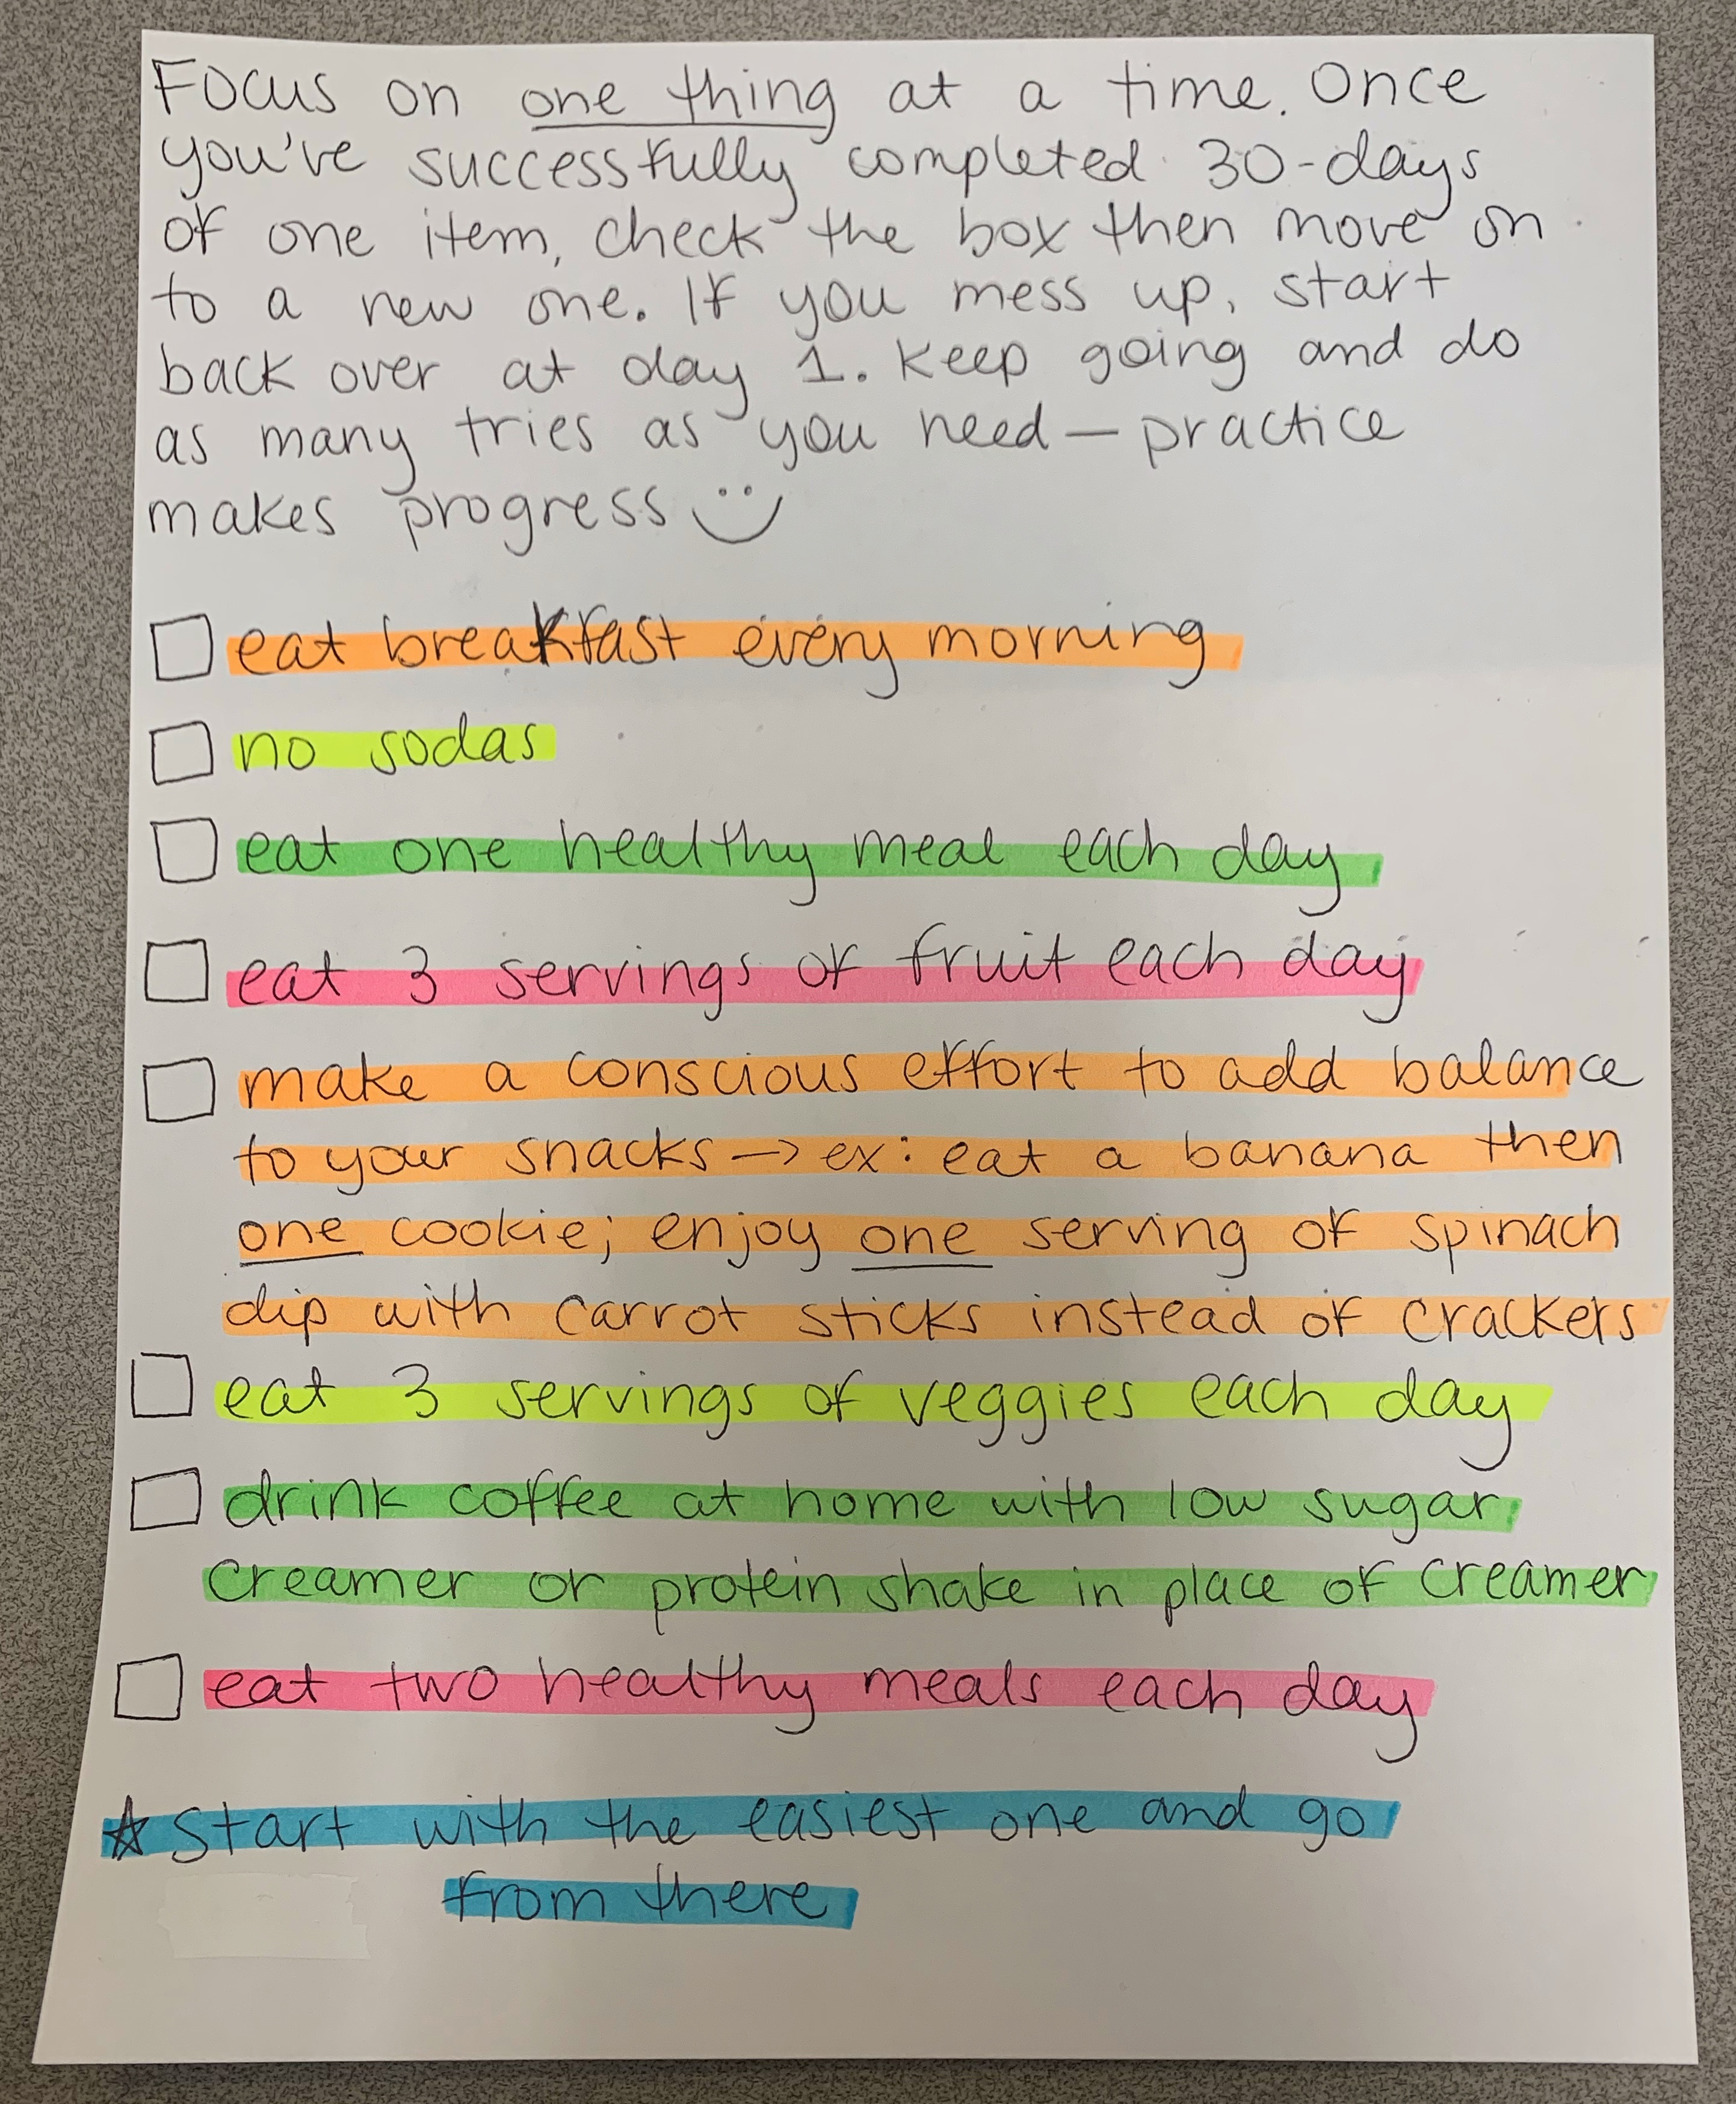 Focus on one thing at a time. Once
you've successfully completed 30-days
of one item, check the box then move on
to a new one. If you mess up, start
back over at day 1. Keep going and do
as many tries as you need — practice
makes progress
eat breakfast every morning
no sodas
eat one healthy meal each day
eat 3 servings of fruit each day
make a conscious effort to add balance
to your snacks → ex: eat a banana then
one cookie; enjoy one serving of spinach
dip with carrot sticks instead of crackers
eat 3 servings of veggies each day
drink coffee at home with low sugar
creamer or protein shake in place of creamer
eat two healthy meals each day
☆ Start with the easiest one and go
from there